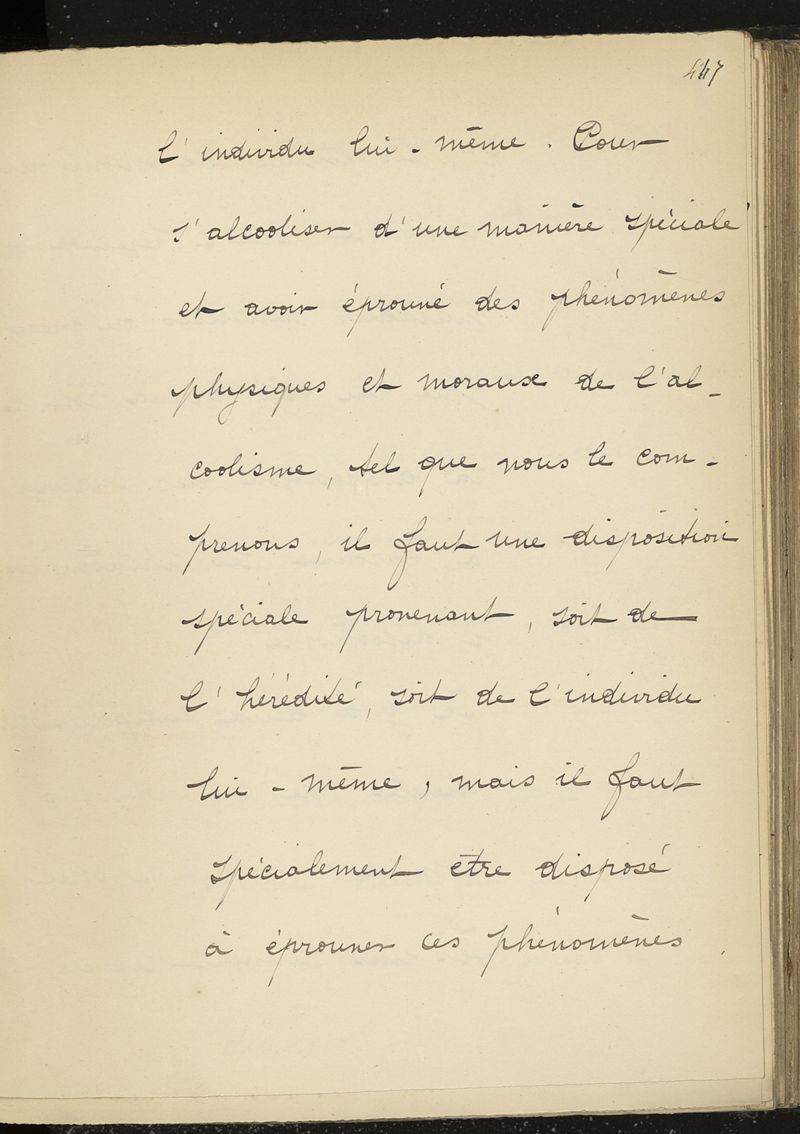 447
l'individu lui-même. Pour
s'alcooliser d'une manière spéciale
et avoir éprouvé des phénomènes
physiques et moraux de l'al-
coolisme, tel que nous le com-
prenons, il faut une disposition
spéciale provenant, soit de
l'hérédité, soit de l'individu
lui-même, mais il faut
spécialement etre disposé
à éprouver ces phénomènes.